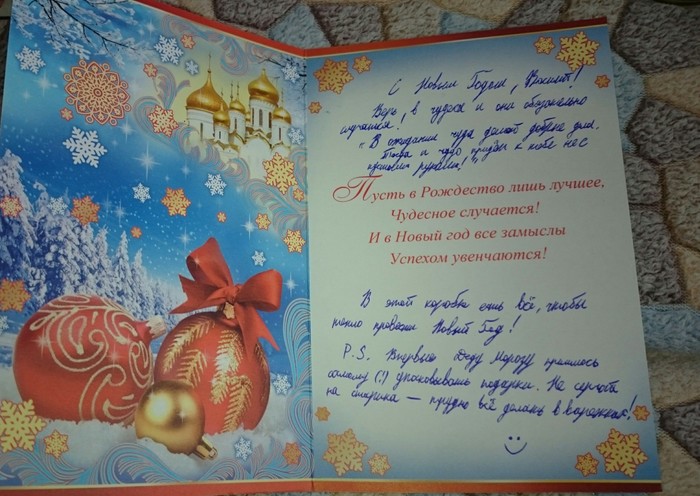 С Новым Годом, Филипп!
Верь, в чудеса и они обязательно
случатся!
"В ожидании чуда делай добрые дела.
Тогда и чудо придет к тебе
руками!"
Пусть в Рождество лишь лучшее,
Чудесное случается!
И в Новый год все замыслы
Успехом увенчаются!
В этой коробке есть всё, чтобы
тепло провести Новый Год!
P.S. Впервые Деду Морозу пришлось
самому (!) упаковывать подарки. Не серчай
на старика — трудно всё делать в варежках!